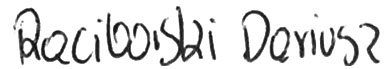 Raciborski Dariusz